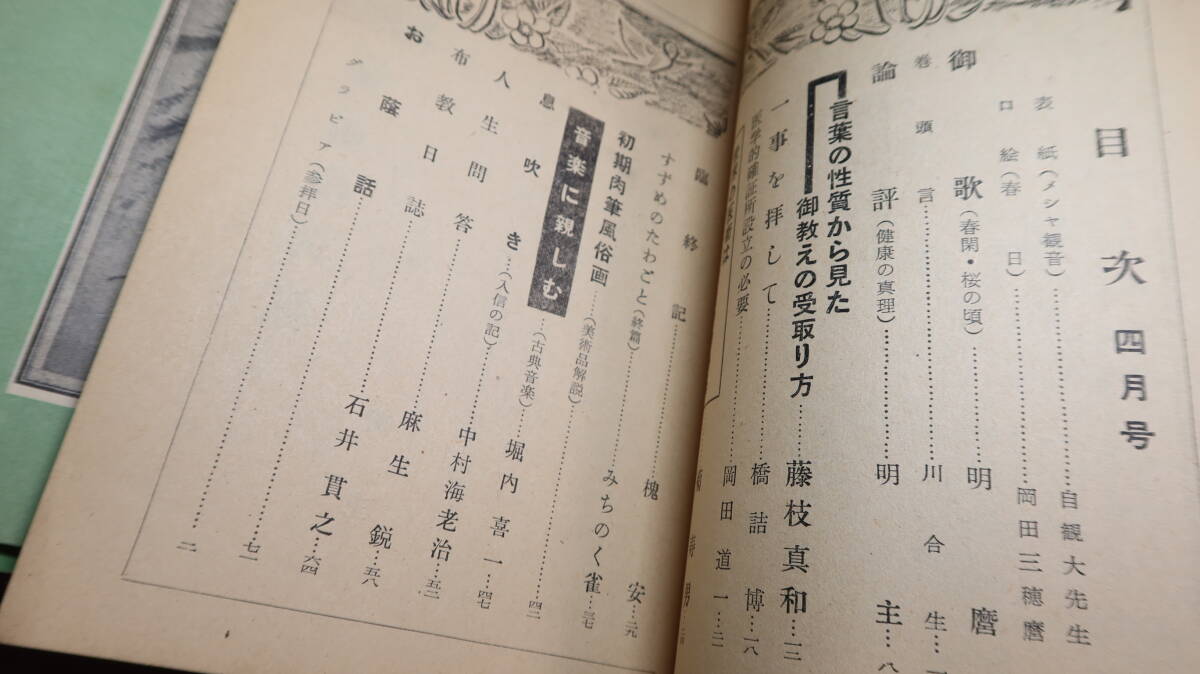 目次 四月号
表紙(メシャ観音)……自観大先生
口絵(春日)……岡田三穂麿
御歌(春閑・桜の頃)……明麿
巻頭言……川合生…
論評(健康の真理)……明主…八
言葉の性質から見た
御教えの受取り方…藤枝真和…一三
一事を拝して……橋詰博…一八
医学的確証所設立の必要……岡田道一…二一
臨終記……槐安…二九
すずめのたわごと(終篇)……みちのく雀…三七
初期肉筆風俗画……(美術品解説)……四二
音楽に親しむ…(古典音楽)
息吹き…(入信の記)…堀内喜一…四七
人生問答……中村海老治…五二
布教日誌……麻生鋭…五八
お蔭話……石井貫之…六四
グラビア(参拝日)……七一
……二